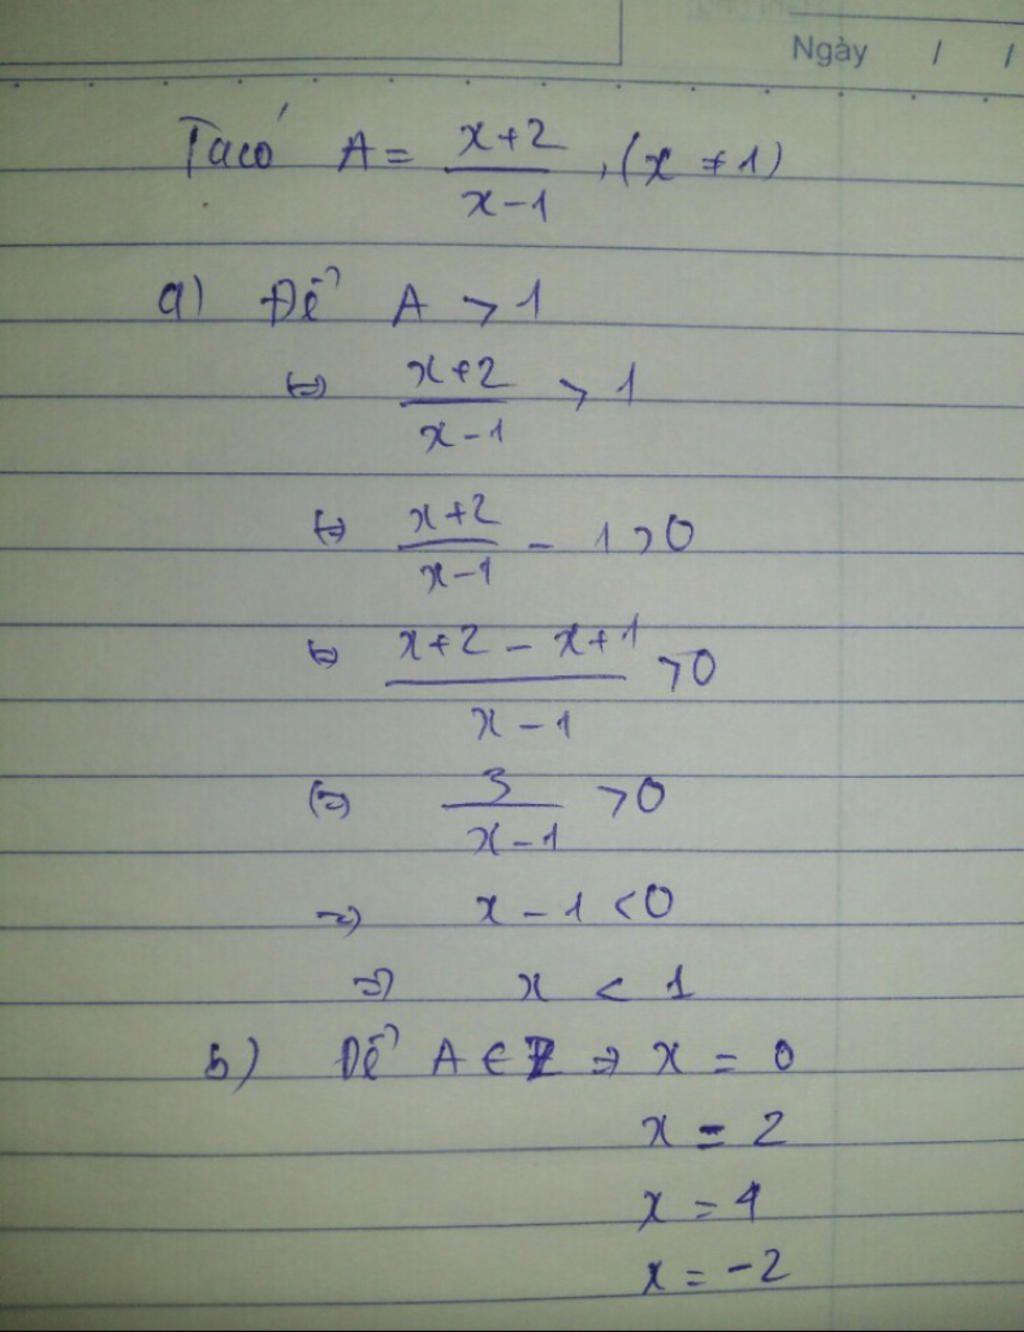 Ngày / /
Ta có A = \frac{x+2}{x-1}, (x ≠ 1)
a) Để A > 1
⇔ \frac{x+2}{x-1} > 1
⇔ \frac{x+2}{x-1} - 1 > 0
⇔ \frac{x+2-x+1}{x-1} > 0
⇔ \frac{3}{x-1} > 0
⇒ x - 1 < 0
⇒ x < 1
b) Để A ∈ Z ⇒ x = 0
x = 2
x = 4
x = -2